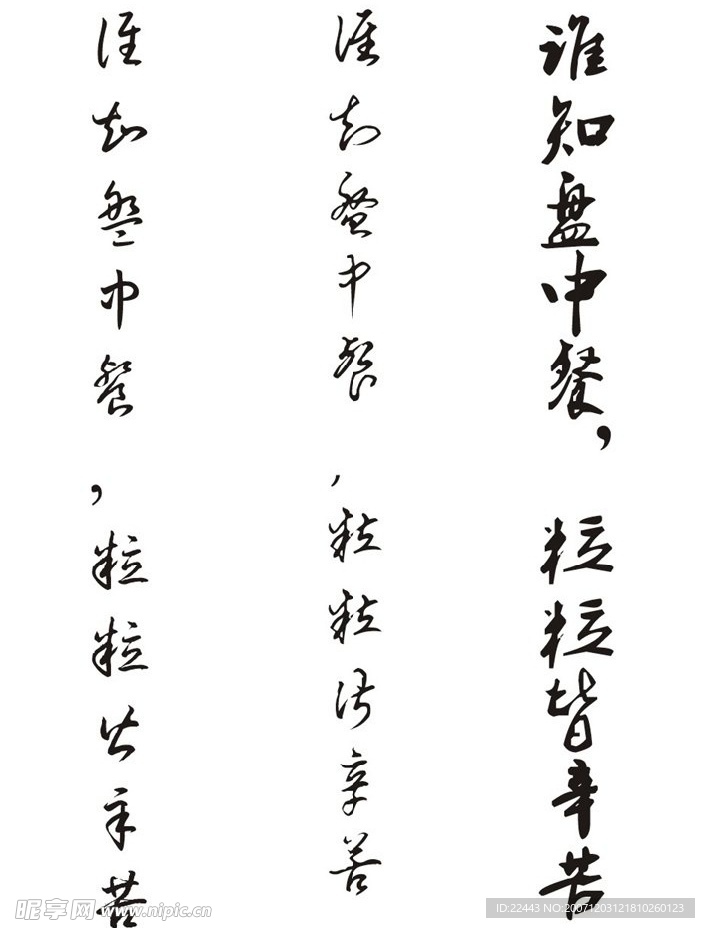 谁知盘中餐，粒粒皆辛苦
谁知盘中餐，粒粒皆辛苦
谁知盘中餐，粒粒皆辛苦
昵享网 www.nipic.cn
ID:22443 NO:20071203121810260123